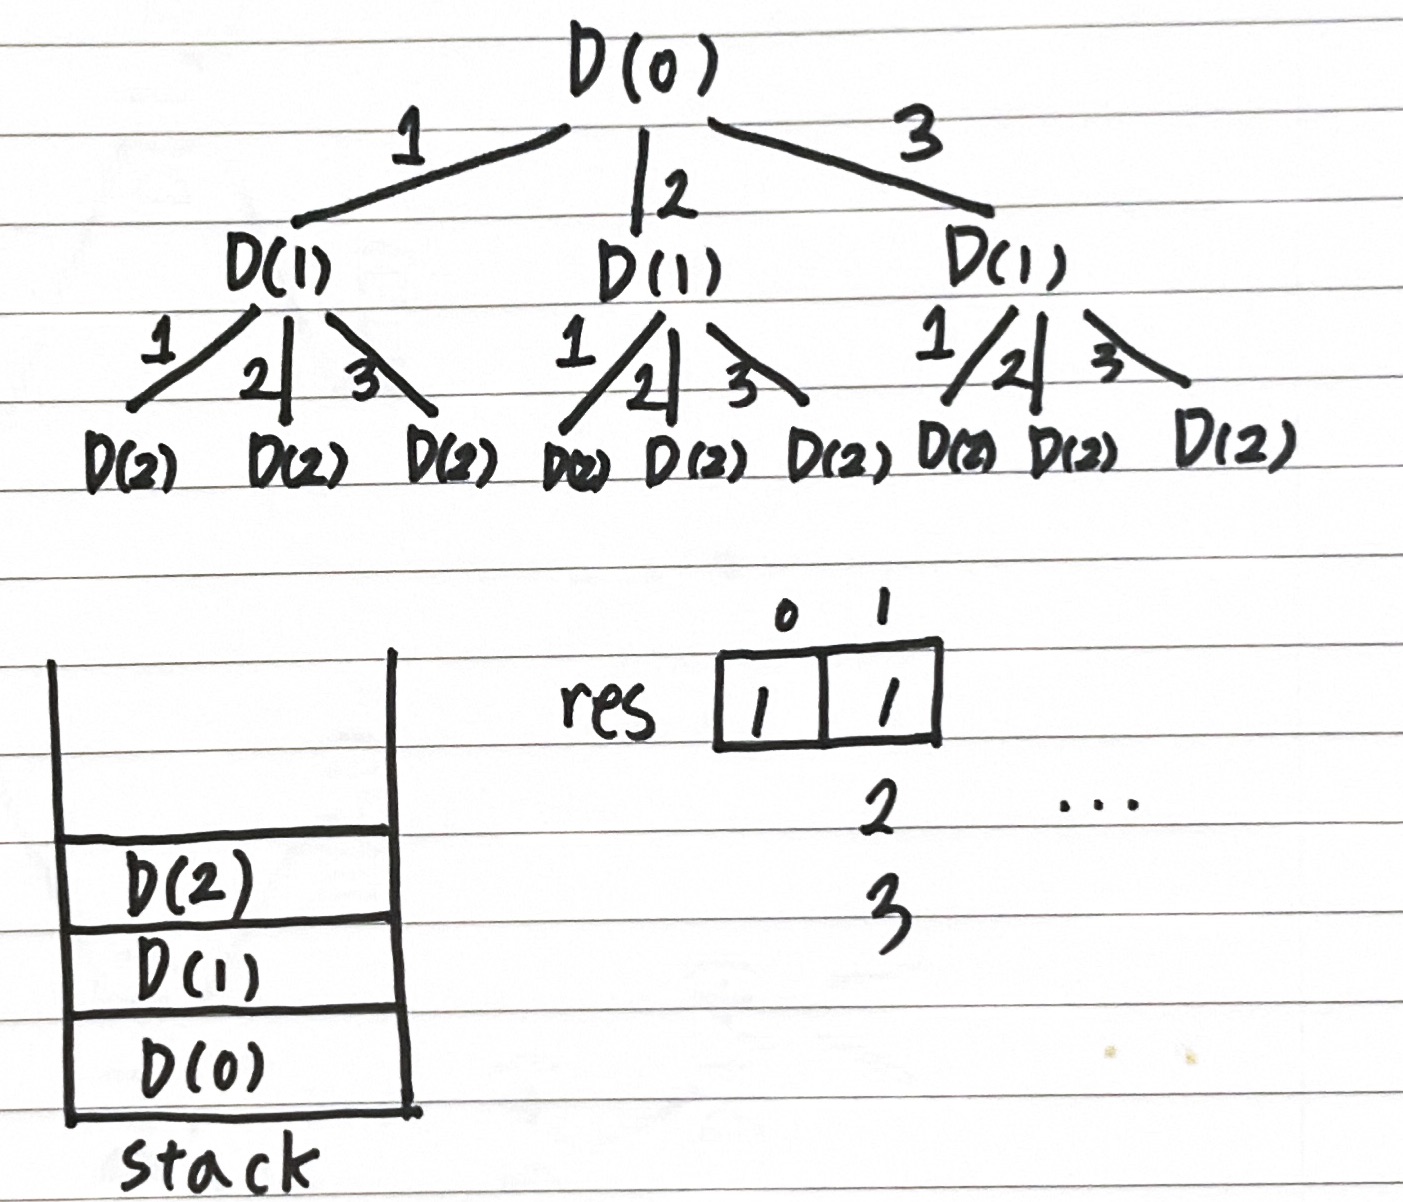 D(0)
1 2 3
D(1) D(1) D(1)
1 2 3 1 2 3 1 2 3
D(2) D(2) D(2) D(2) D(2) D(2) D(2) D(2) D(2)
0 1
res 1 1
2 ...
3
D(2)
D(1)
D(0)
stack